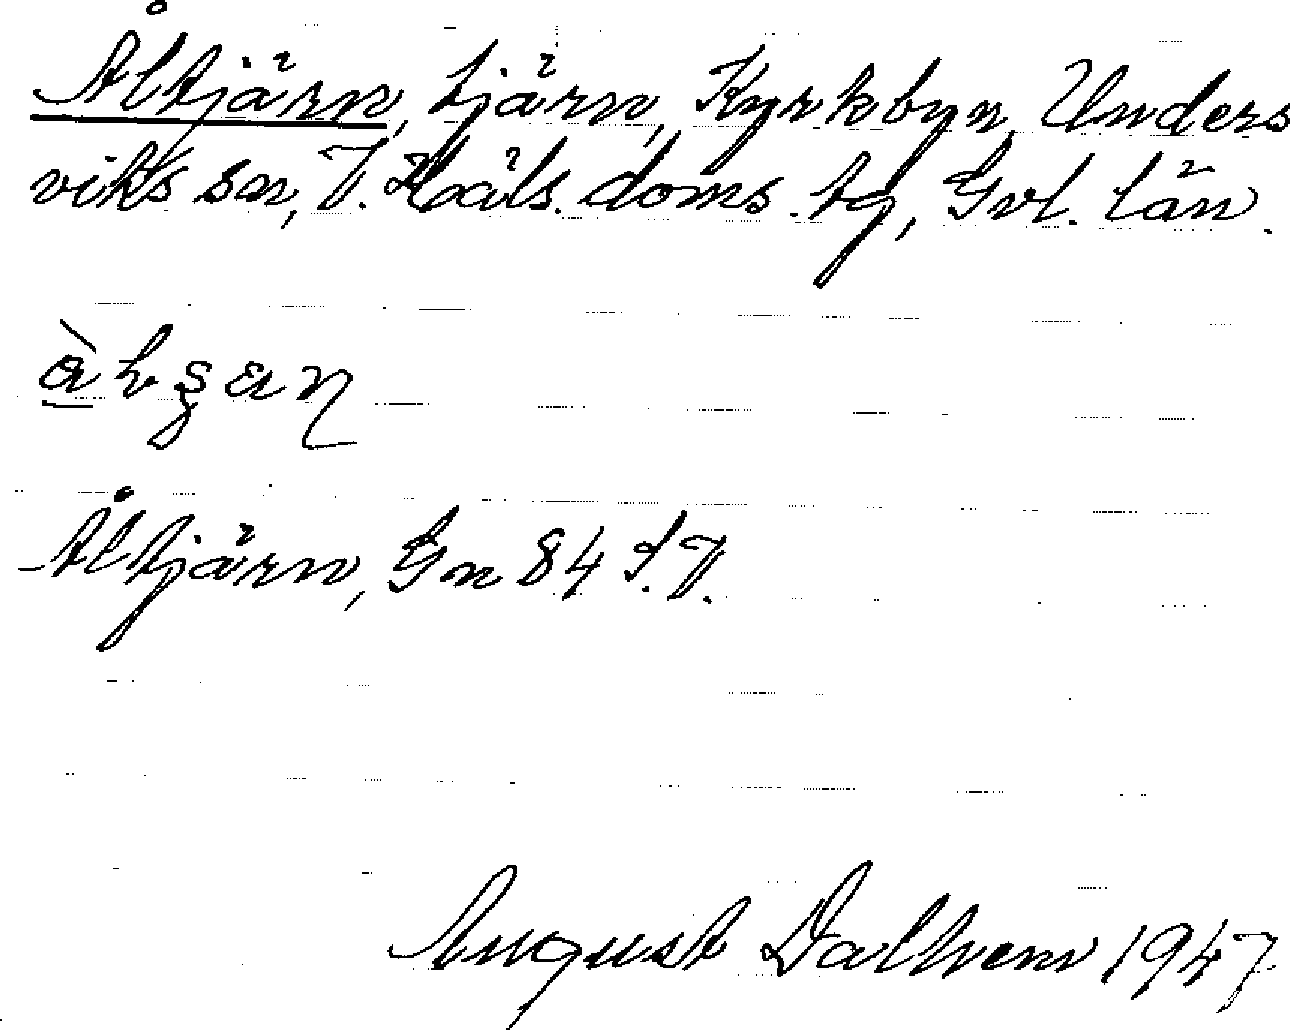 Åltjärn, tjärn, Kyrkbyn, Unders
viks sn, V. Häls. doms. tg, Gvl. län.
Åltjärn, Gn 84 S.V.
August Dalhem 1947